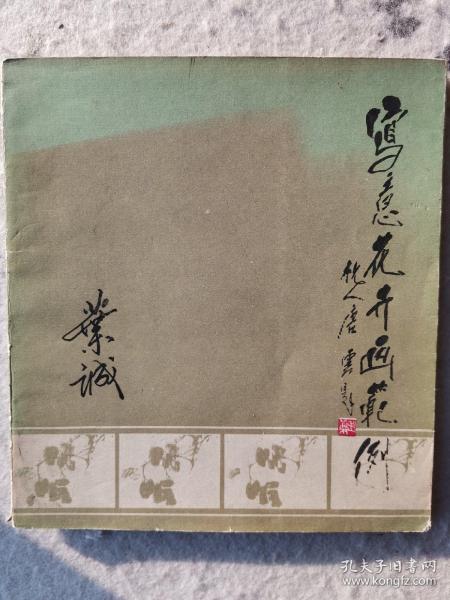 寫意花卉画範例
杭人唐雲題
葉誠
孔夫子旧书网
www.kongfz.com